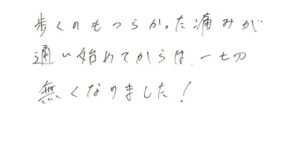 歩くのもつらかった痛みが
通い始めてからは、一切
無くなりました!